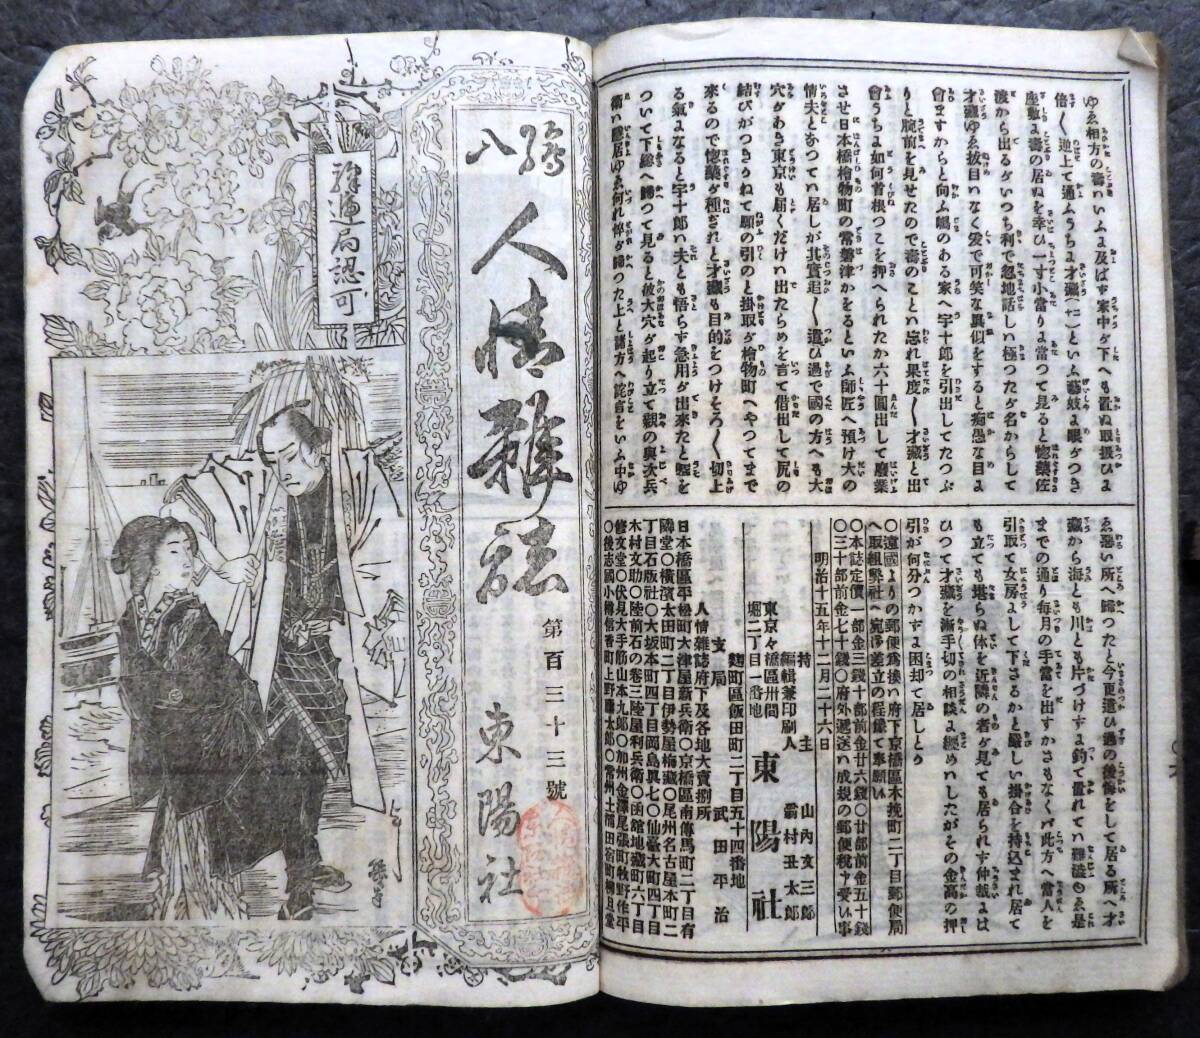 ゆゑ相方の壽いふよ及ばす家中が下へも置ぬ取扱ひよ
倍〻逆上て通ふうちよ才藏(一ニ)といふ藝妓よ眼がつき
座敷よ壽の居ぬを幸ひ一寸小當りよ當つて見ると惚藥佐
渡から出るがいつち利で忽地話しい極つたが名からして
才藏ゆゑ抜目いなく爰で可笑な異似をすると痴愚な目よ
會ますからと向ふ嶋のある家へ宇十郎を引出してたつぷ
りと腕前を見せたので壽のことい忘れ果度〻才藏と出
會うちよ如何首根つこを押へられたか六十圓出して廢業
させ日本橋檜物町の常磐津かをるといふ師匠へ預け大の
情夫となつてい居しが其實追〻遣ひ過で國の方へも大
穴があき東京も届くだけい出たらめを言て借出して尻の
結びがつきかねて願の引の と掛取が檜物町へやつてまで
來るので惚藥が種ぎれと才藏も目的をつけそろ〳〵切上
る氣よなると宇十郎ハ夫とも悟らす急用が出來たと 暇を
ついて下總へ歸つて見ると彼大穴が起り立て親の與次兵
衞ハ隱居ゆゑ何れ悴が歸つた上と諸方へ詫言をいふ中ゆ
ゑ惡い所へ歸つたと今更遣ひ過の後悔をして居る所へ才
藏から海とも川とも片づけすよ釣て置れてい難澁ゆゑ是
までの通り毎月の手當を出すかさもなくバ此方へ當人を
引取て女房よして下さるかと嚴しい掛合を持込まれ居て
も立ても堪らぬ休を近隣の者が見ても居られす仲裁よは
ひつて才藏を漸手切の相談よ纒めハしたがその金高の押
引が何分つかずよ困却て居しとり
〇遠國よりの郵便爲換ハ府下京橋區木挽町二丁目郵便局
へ取組弊社へ宛御差立の程縱て奉願候
〇本誌定價一部金三錢十部前金廿六錢〇廿部前金五十錢
〇三十部前金七十錢〇府外遞送ハ成規の郵便税申受候事
明治十五年十二月二十六日
持主 山内文三郎
編輯兼印刷人 霜村丑太郎
東京々橋區卅間堀二丁目一番地 東陽社
麴町區飯田町二丁目五十四番地
支局 武田平治
人情雜誌府下及各地大賣捌所
日本橋區平松町大津屋新兵衞〇京橋區南傳馬町二丁目有
隣堂〇横濱太田町二丁目伊勢屋梅藏〇尾州名古屋本町二
丁目石版社〇大坂本町四丁目岡島眞七〇仙臺大町四丁目
木村文助〇陸前石の卷三陸屋利兵衞〇函館地藏町六丁目
修文堂〇伏見大手筋山本九郎〇加州金澤尾張町牧野作平
〇後志國小樽信香町上野藤太郎〇常州土浦田宿町柳旦堂
繪入
人情雜誌
第百三十三號
東陽社
驛遞局認可